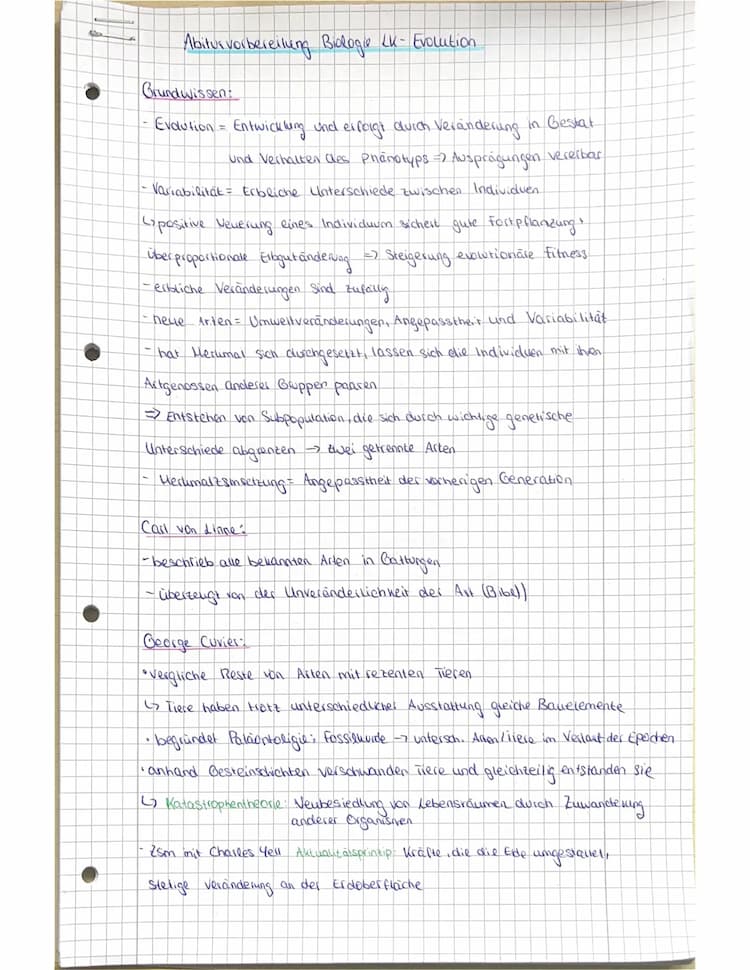 Abiturvorbereitung Biologie LK - Evolution
Grundwissen:
- Evolution = Entwicklung und erfolgt durch Veränderung in Gestalt
und Verhalten des Phänotyps => Ausprägungen vererbbar
- Variabilität = Erbliche Unterschiede zwischen Individuen
↳ positive Neuerung eines Individuum sichert gute Fortpflanzung,
überproportionale Erbgutänderung => Steigerung evolutionäre Fitness
- erbliche Veränderungen sind zufällig
- neue Arten = Umweltveränderungen, Angepasstheit und Variabilität
- hat Merkmal sich durchgesetzt, lassen sich die Individuen mit ihren
Artgenossen anderer Gruppen paaren
=> Entstehen von Subpopulation, die sich durch wichtige genetische
Unterschiede abgrenzen → zwei getrennte Arten
- = Angepasstheit der vorherigen Generation
Carl von Linne:
- beschrieb alle bekannten Arten in Gattungen
- überzeugt von der Unveränderlichkeit der Art (Bibel)
George Cuvier:
• vergliche Reste von Arten mit rezenten Tieren
↳ Tiere haben trotz unterschiedlicher Ausstattung gleiche Bauelemente
• begründet Paläontologie; Fossilkunde → untersch. Arten/Tiere im Verlauf der Epochen
• anhand Gesteinschichten verschwanden Tiere und gleichzeitig entstanden sie
↳ Katastrophentheorie: Neubesiedlung von Lebensräumen durch Zuwanderung
anderer Organismen
- Zsm mit Charles Aktualitätsprintip: Kräfte, die die Erde umgestaltet,
stetige Veränderung an der Erdoberfläche